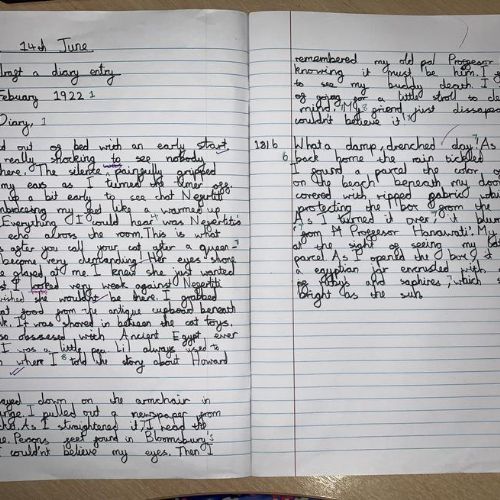 14th June
draft a diary entry
Febuary 1922
Diary,
out of bed with an early start
really shocking to see nobody
here. The silence painfully gripped
my ears as I turned the timer off.
up a bit early to see that Nefertiti
embracing my bed like a warmed up
Everything I could hear was Nefertiti's
echo across the room. This is what
after you call your cat after a queen
become very demanding! Her eyes shone
glared at me. I knew she just wanted
I looked very weak against Nefertiti
wished she wouldn't be here. I grabbed
cat food from the antique cupboard beneath
It was shoved in between the cat toys.
so obsessed with Ancient Egypt ever
I was a little pea. Lil always used to
where I told the story about Howard
down on the armchair in
I pulled out a newspaper from
As I straightened it, I read the
Persons feet found in Bloomsbury's
I couldn't believe my eyes. Then I
remembered my old pal Professor
knowing it must be him. I
to see my buddy death. I
of going for a little stroll to
mind. My friend just
couldn't believe it!
What a damp, drenched day! As
back home the rain sickled
I found a parcel the color of
on the beach beneath my door
covered with ripped fabric
protecting the box from the
As I turned it over, it
from M Professor Hanawati. My
at the sight of seeing my
parcel. As I opened the box, I
a egyptian jar encrusted with
of rubys and saphires, which
bright as the sun